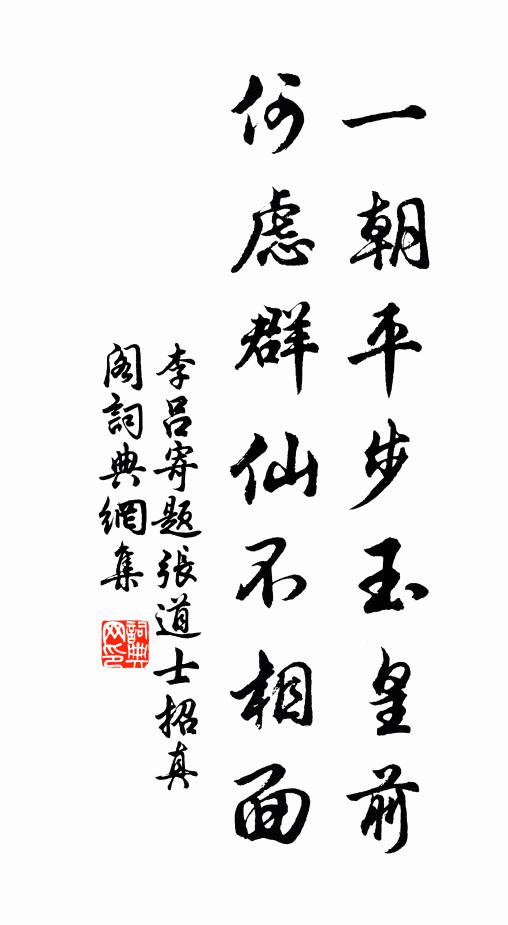 一朝平步玉皇前
何慮群仙不相面
李呂寄題張道士招真
阁詞典網集
詞典
网印